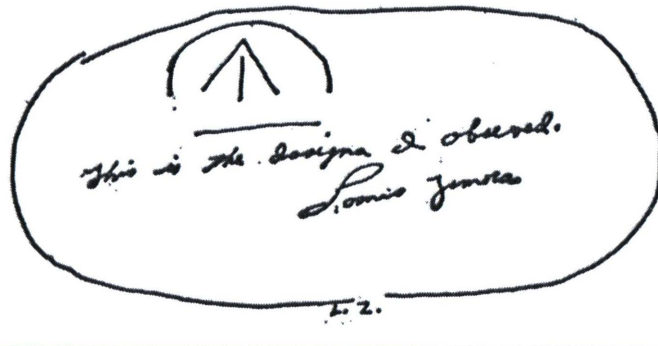 This is the design I observed.
Lonnie Zamora
L.Z.